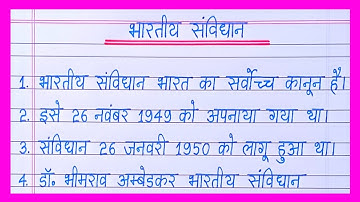 भारतीय संविधान
1. भारतीय संविधान भारत का सर्वोच्च कानून है।
2. इसे 26 नवंबर 1949 को अपनाया गया था।
3. संविधान 26 जनवरी 1950 को लागू हुआ था।
4. डॉ. भीमराव अम्बेडकर भारतीय संविधान